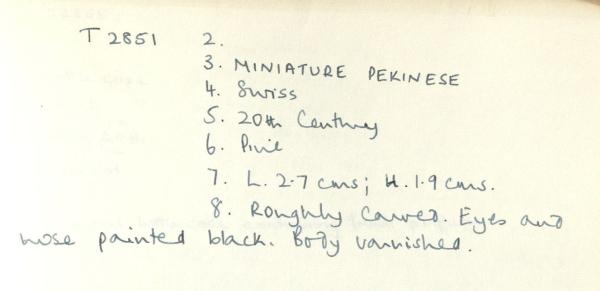 T 2851 2.
3. MINIATURE PEKINESE
4. Swiss
5. 20th Century
6. Pine
7. L. 2.7 cms; H. 1.9 cms.
8. Roughly Carved. Eyes and
nose painted black. Body varnished.